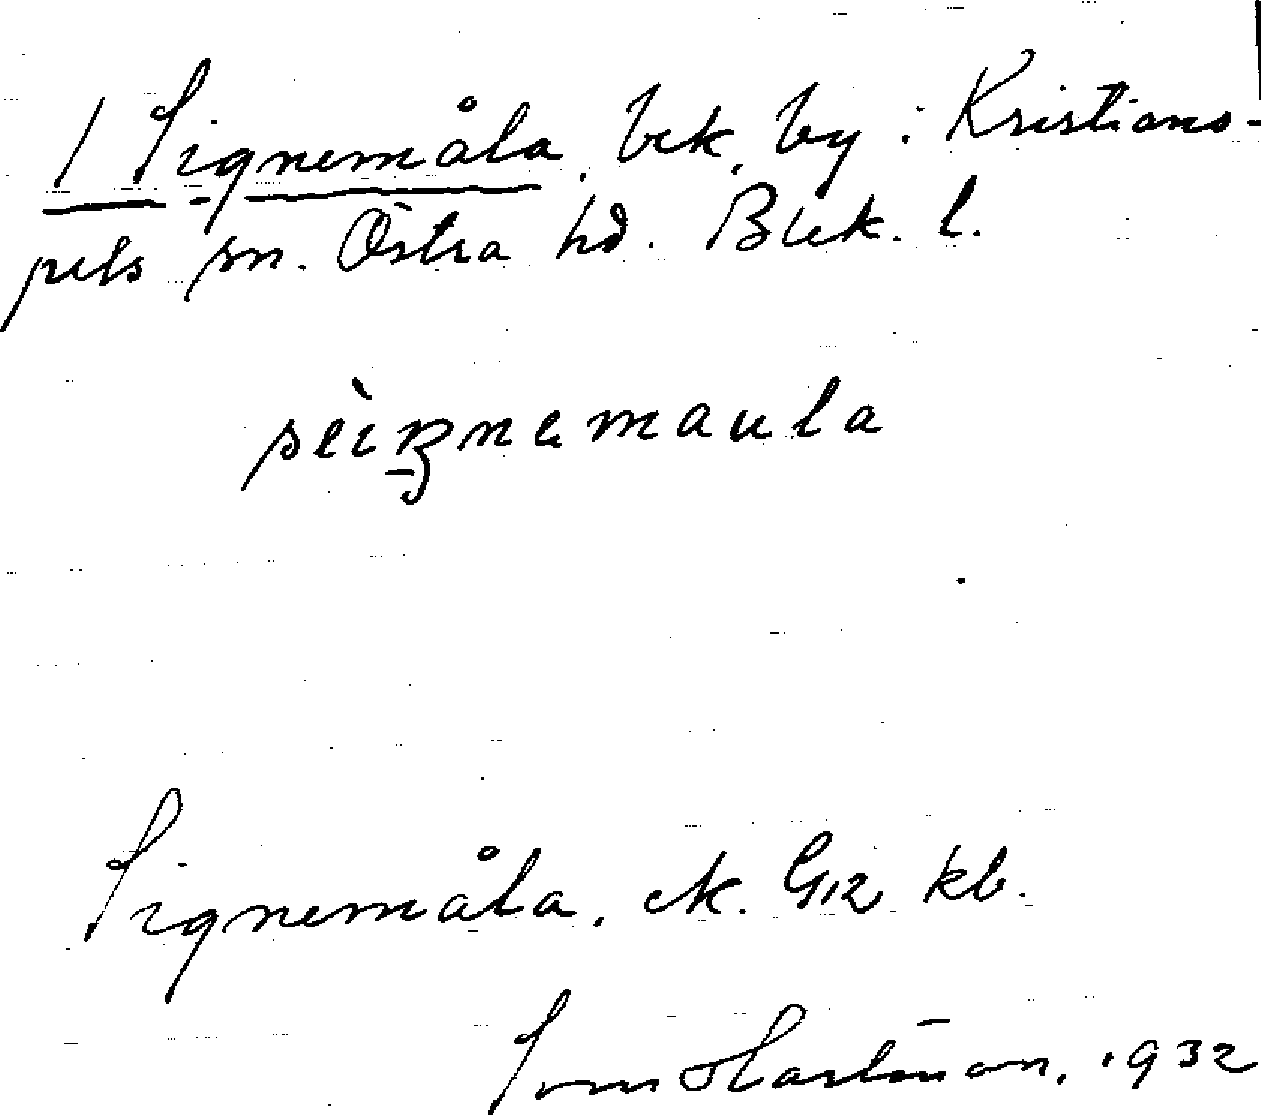 1 Signemåla, bek, by i Kristiano-
pels sn. Östra hd. Blek. l.
sèiŋnemaula
Signemåla, ek. G12 kb.
Hartman, 1932